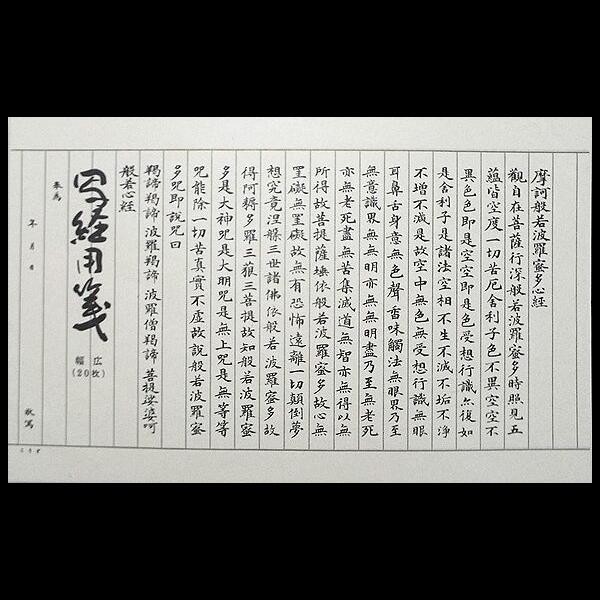 摩訶般若波羅蜜多心經
觀自在菩薩行深般若波羅蜜多時照見五
蘊皆空度一切苦厄舍利子色不異空空不
異色色即是空空即是色受想行識亦復如
是舍利子是諸法空相不生不滅不垢不淨
不增不減是故空中無色無受想行識無眼
耳鼻舌身意無色聲香味觸法無眼界乃至
無意識界無無明亦無無明盡乃至無老死
亦無老死盡無苦集滅道無智亦無得以無
所得故菩提薩埵依般若波羅蜜多故心無
罣礙無罣礙故無有恐怖遠離一切顛倒夢
想究竟涅槃三世諸佛依般若波羅蜜多故
得阿耨多羅三藐三菩提故知般若波羅蜜
多是大神咒是大明咒是無上咒是無等等
咒能除一切苦真實不虛故說般若波羅蜜
多咒即說咒曰
羯諦羯諦 波羅羯諦 波羅僧羯諦 菩提娑婆呵
般若心經
写経用箋
幅広
(20枚)
奉為
年 月 日
敬寫